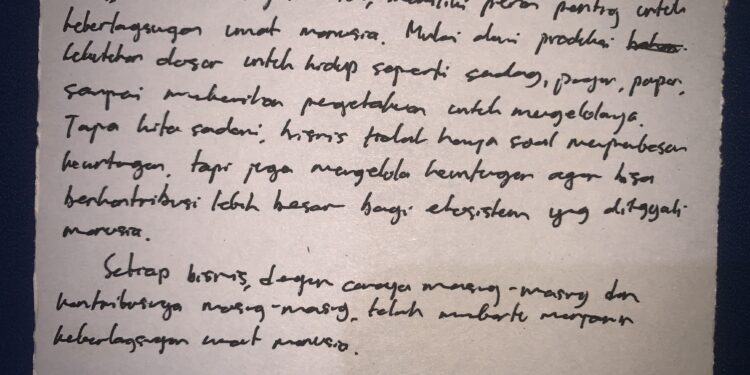 memiliki peran penting untuk
keberlangsungan umat manusia. Mulai dari produksi
kebutuhan dasar untuk hidup seperti sadang, pangan, papan,
sampai memberikan pengetahuan untuk mengelolanya.
Tanpa kita sadari, bisnis tidak hanya soal menyebabkan
keuntungan, tapi juga mengelola keuntungan agar bisa
berkontribusi lebih besar bagi ekosistem yng ditinggali
manusia.
Setiap bisnis, dengan caranya masing-masing dan
kontribusinya masing-masing, telah membantu menjamin
keberlangsungan umat manusia.